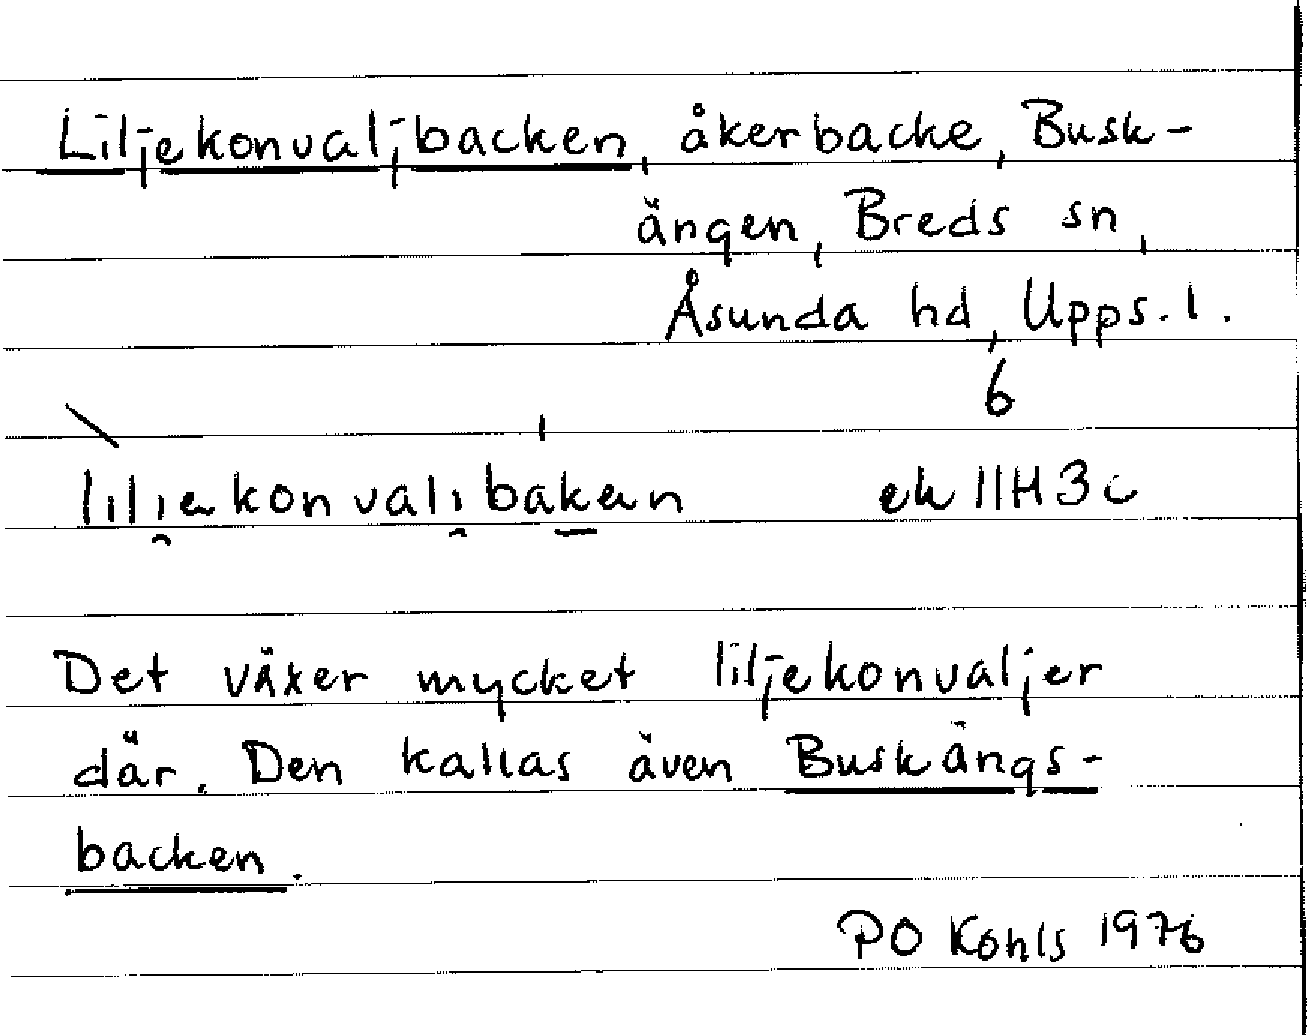 Liljekonvaljbacken, åkerbacke, Busk-
ängen, Breds sn,
Åsunda hd, Upps. l.
6
lilıekonvalıbaken ek 11H3c
Det växer mycket liljekonvaljer
där. Den kallas även Buskängs-
backen.
PO Kohls 1976